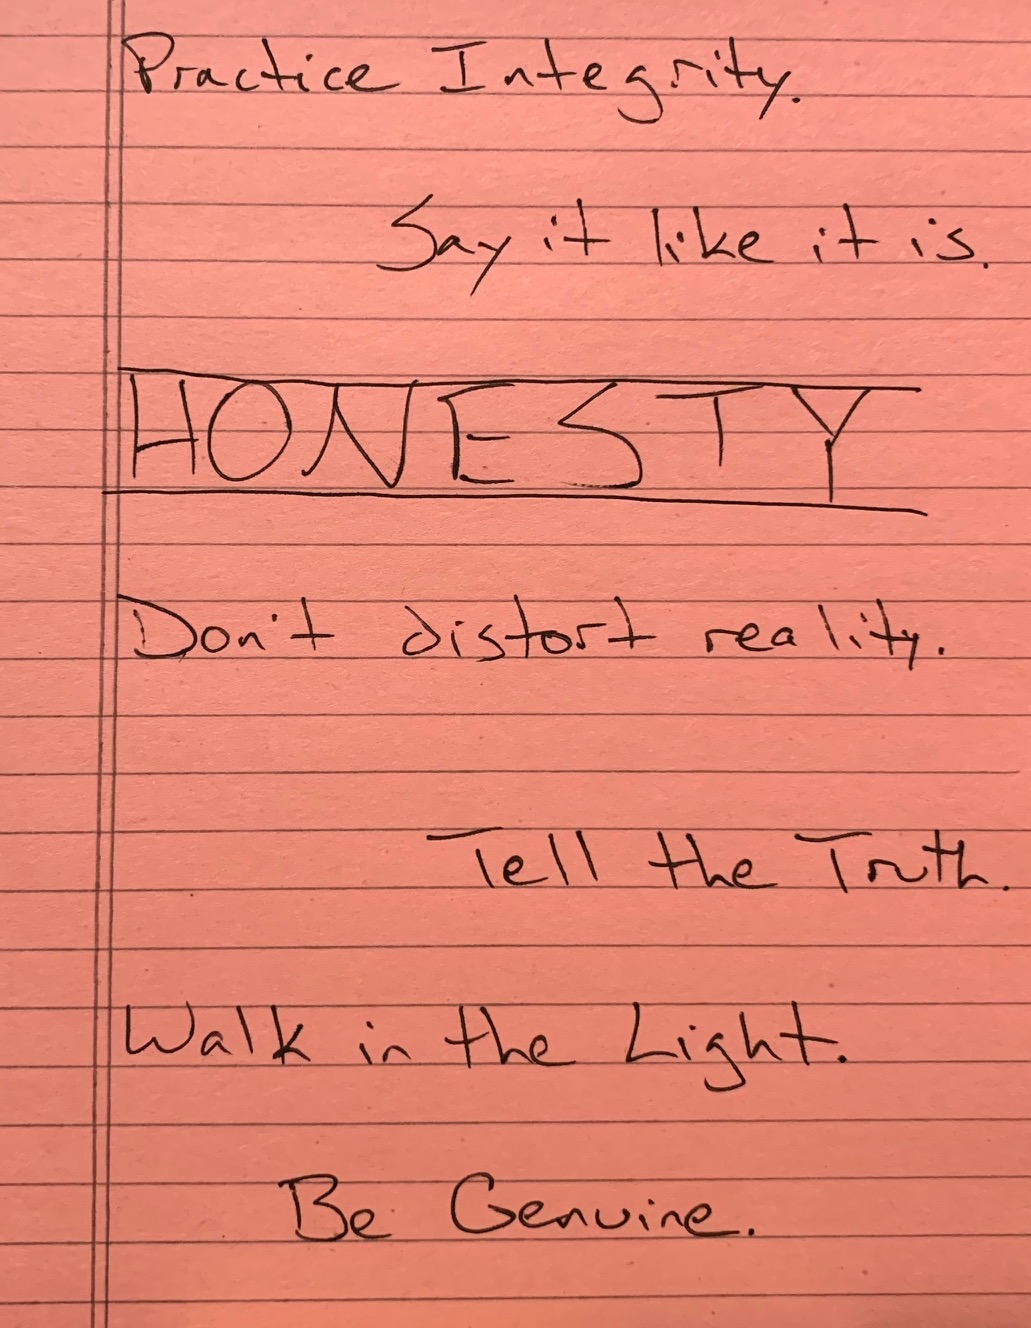 Practice Integrity.
Say it like it is.
HONESTY
Don't distort reality.
Tell the Truth.
Walk in the Light.
Be Genuine.